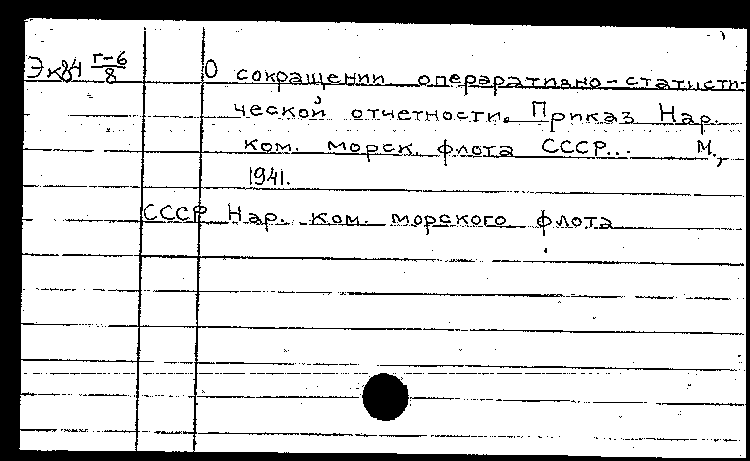 Эк84 Г-6/8 О сокращении операративно-статисти-
ческой отчетности. Приказ Нар.
ком. морск. флота СССР... М.,
1941.
СССР Нар. ком. морского флота